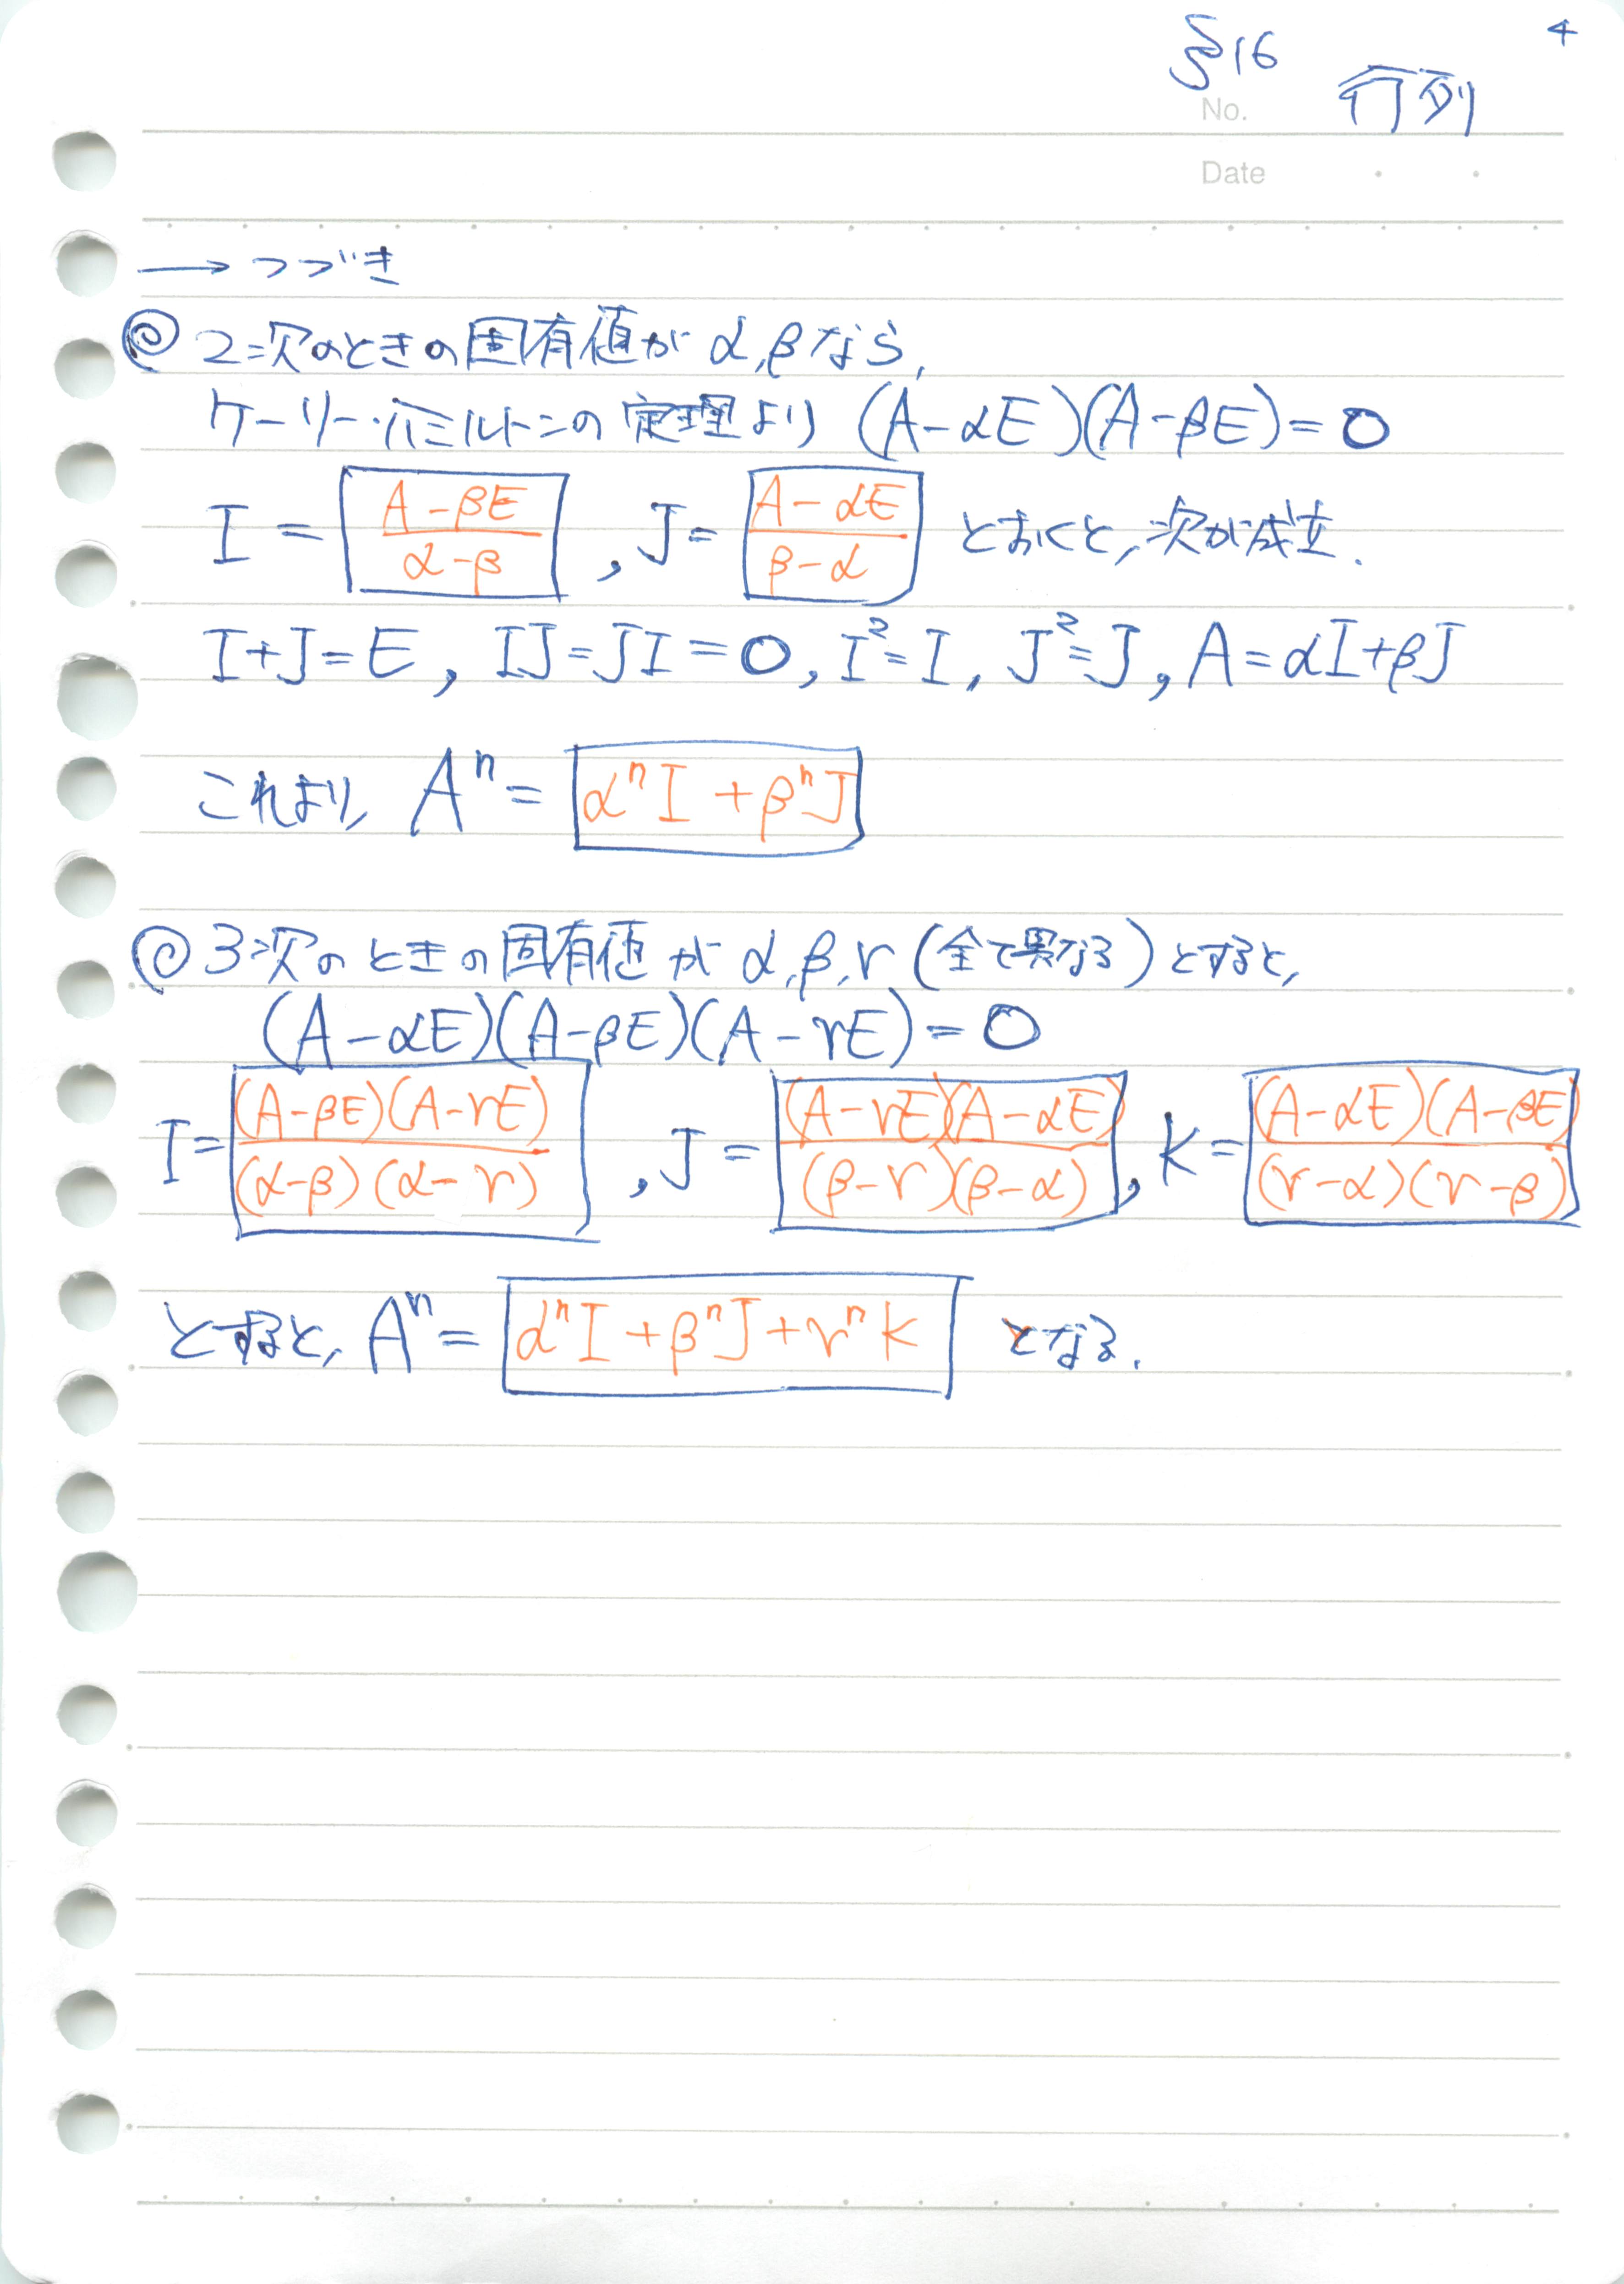 4
§16
No. 行列
Date
→ つづき
◎ 2次のときの固有値が α,βなら,
ケーリー・ハミルトンの定理より (A-αE)(A-βE)=O
I = (A-βE)/(α-β) , J = (A-αE)/(β-α) とおくと,次が成立.
I+J=E, IJ=JI=O, I²=I, J²=J, A=αI+βJ
これより, Aⁿ = αⁿI+βⁿJ
◎ 3次のときの固有値が α,β,γ (全て異なる)とすると,
(A-αE)(A-βE)(A-γE)=O
I = (A-βE)(A-γE)/(α-β)(α-γ) , J = (A-γE)(A-αE)/(β-γ)(β-α) , K = (A-αE)(A-βE)/(γ-α)(γ-β)
とすると, Aⁿ = αⁿI+βⁿJ+γⁿK となる.